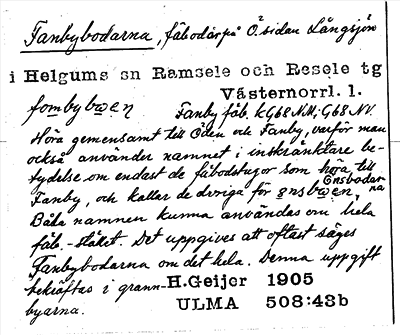 Fanbybodarna, fäbodar på Ö sidan Långsjön
i Helgums sn Ramsele och Resele tg
Västernorrl. l.
fombybwen Fanby fäb. kG68 NM; G68 NV.
Höra gemensamt till Öden och Fanby, varför man
också använder namnet i inskränktare be-
tydelse om endast de fäbodstugor som höra till
Fanby, och kallar de övriga för ønsbwen, Ensbodar-
na
Båda namnen kunna användas om hela
fäb.-stället. Det uppgives att oftast säges
Fanbybodarna om det hela. Denna uppgift
bekräftas i grann- H.Geijer 1905
byarna. ULMA 508:43b